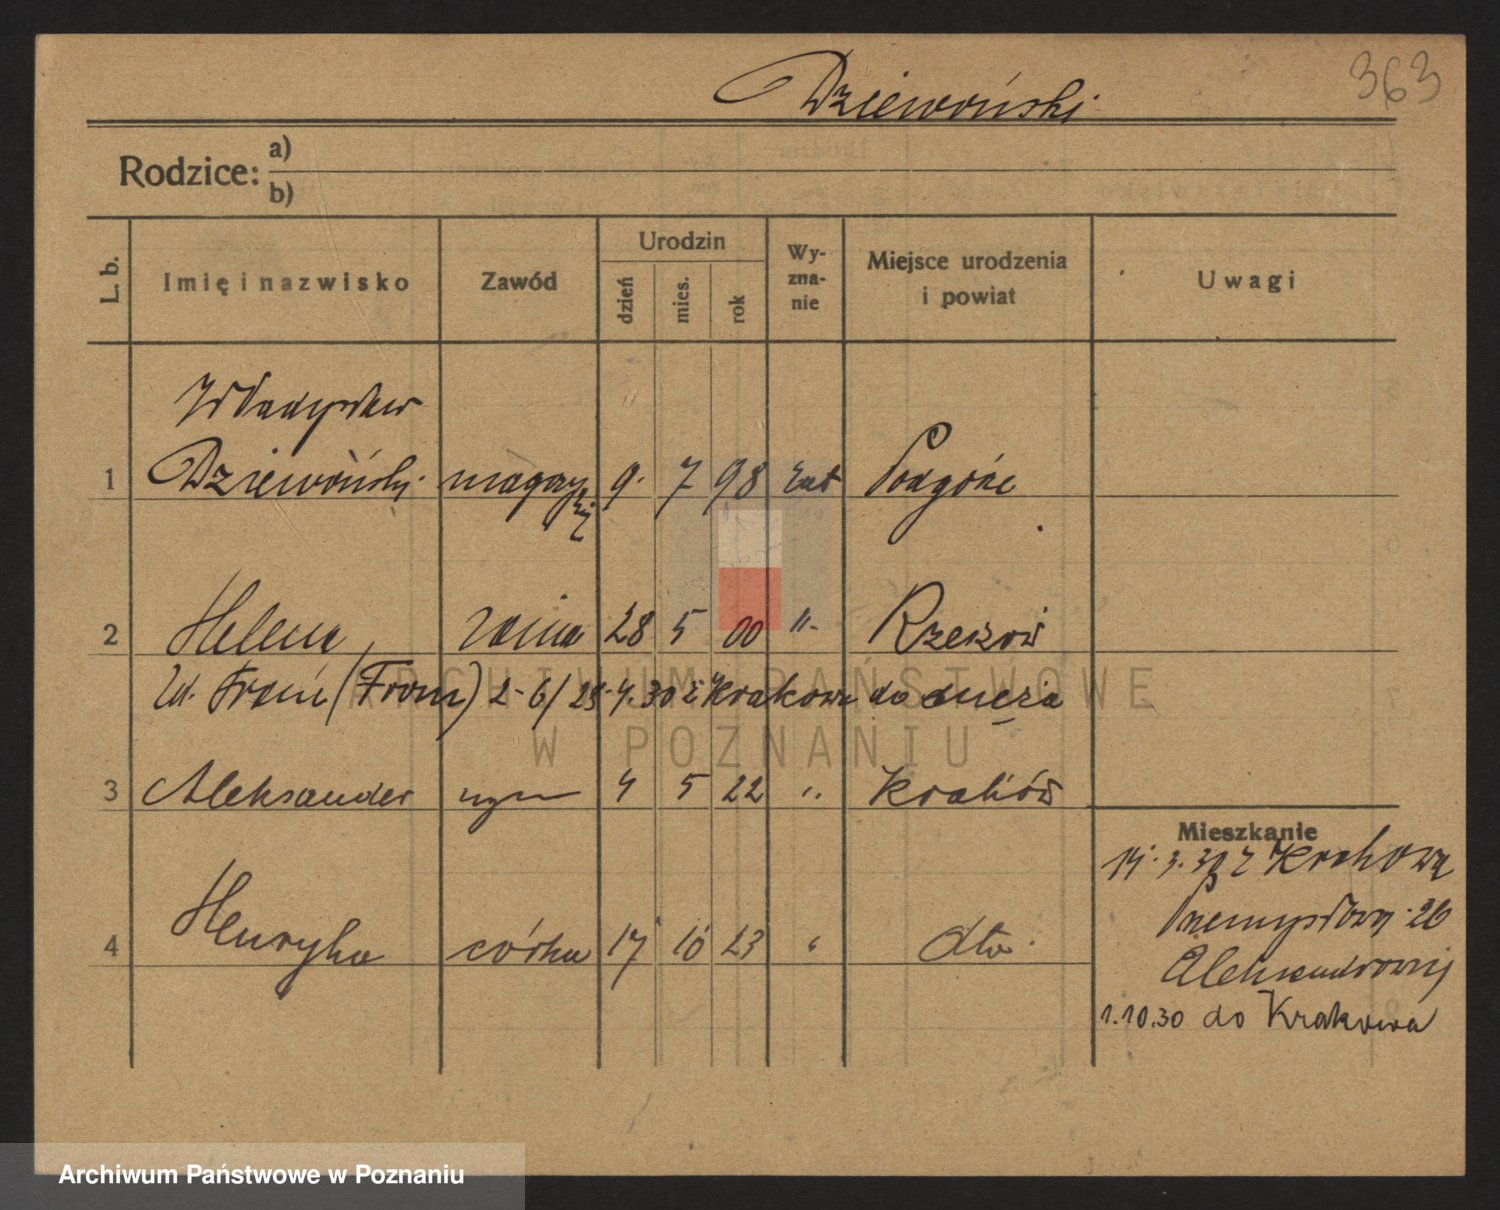 363
Dziewoński
Rodzice: a)
b)
L. b.
Imię i nazwisko
Zawód
Urodzin
dzień
mies.
rok
Wy-
zna-
nie
Miejsce urodzenia
i powiat
Uwagi
Władysław
1 Dziewoński magazy 9. 7 98 kat Podgórze
2 Helena 28 5 00 "- Rzeszów
(From) 2-6/ 28.4.30 z Krakowa do męża
3 Aleksander syn 4 5 22 " Kraków
4 Henryka córka 17 10 23 " dto.
Mieszkanie
3. 30 z Krakowa
Przemysłowa 26
1.10.30 do Krakowa
ARCHIWUM PAŃSTWOWE
W POZNANIU
Archiwum Państwowe w Poznaniu